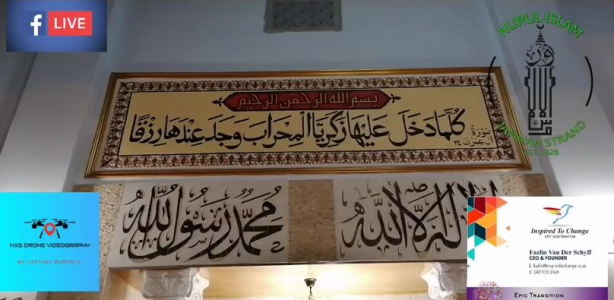 LIVE
NURUL ISLAM
STRAND
بسم الله الرحمن الرحيم
كُلَّمَا دَخَلَ عَلَيْهَا زَكَرِيَّا الْمِحْرَابَ وَجَدَ عِنْدَهَا رِزْقًا
لا إله إلا الله
محمد رسول الله
NXG DRONE VIDEOGRAPHY
WE CAPTURE MOMENTS
Inspired To Change
Fazlin Van Der Schyff
CEO & FOUNDER
EPIC TRANSITION